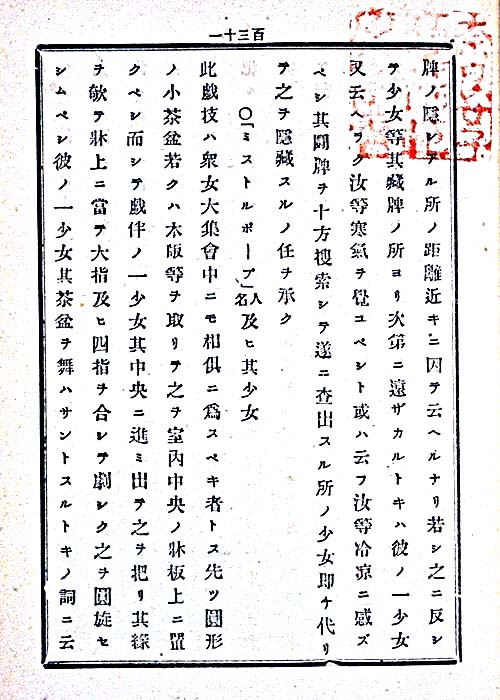 百三十一
牌ノ隠シアル所ノ距離近キニ因テ云ヘルナリ若シ之ニ反シ
テ少女等其蔵牌ノ所ヨリ次第ニ遠ザカルトキハ彼ノ一少女
又云ヘラク汝等寒氣ヲ覺ユベシト或ハ云フ汝等冷凉ニ感ズ
ベシ其鬪牌ヲ十方搜索シテ遂ニ査出スル所ノ少女即チ代リ
テ之ヲ隱藏スルノ任ヲ承ク
○「ミストルポープ」人名及ヒ其少女
此戯技ハ衆女大集會中ニモ相倶ニ爲スベキ者トス先ツ圓形
ノ小茶盆若クハ木版等ヲ取リテ之ヲ室内中央ノ牀板上ニ置
クベシ而シテ戯伴ノ一少女其中央ニ進ミ出テ之ヲ把リ其緣
ヲ欹テ牀上ニ當テ大指及ヒ四指ヲ合シテ劇シク之ヲ圓旋セ
シムベシ彼ノ一少女其茶盆ヲ舞ハサントスルトキノ詞ニ云